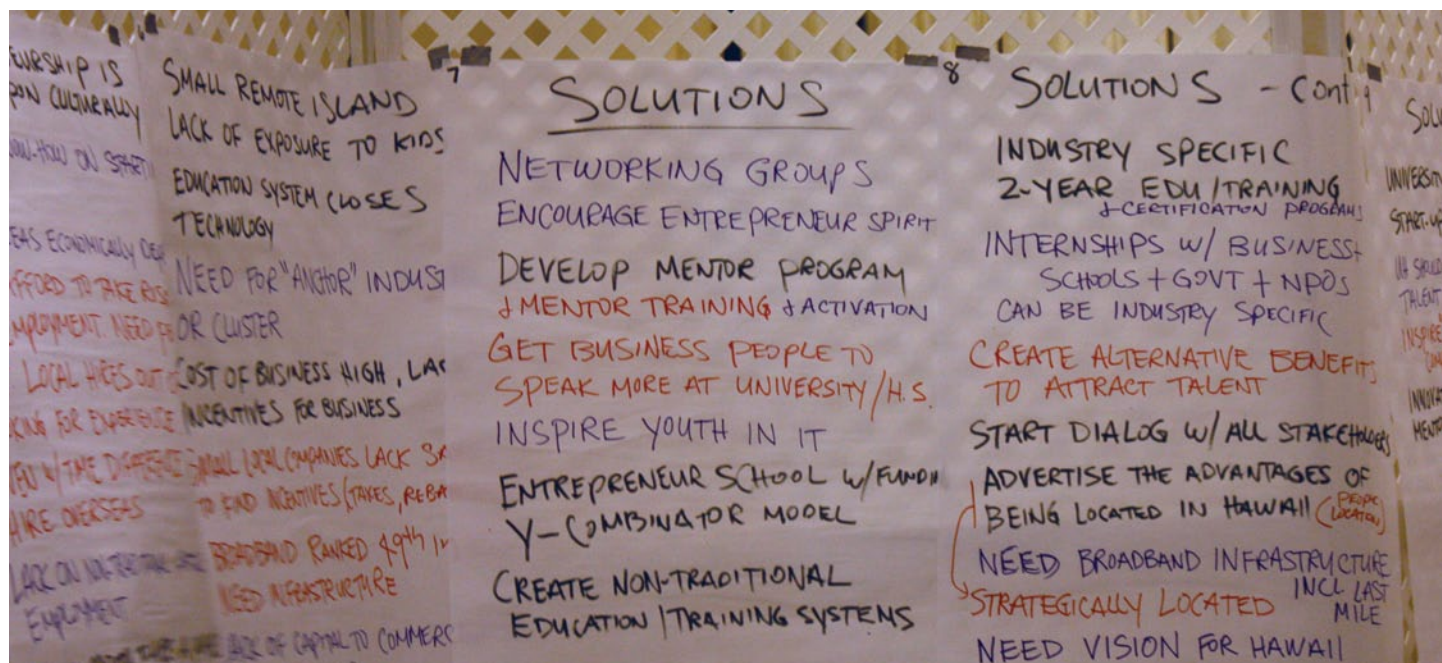 EURSHIP IS
CULTURALLY
ECONOMICALLY
TO TAKE
EMPLOYMENT. NEED
LOCAL HIRES OUT
KING FOR EXPERIENCE
W/ TIME DIFFERENCE
HIRE OVERSEAS
LACK ON
EMPLOYMENT
SMALL REMOTE ISLAND
LACK OF EXPOSURE TO KIDS
EDUCATION SYSTEM CLOSES
TECHNOLOGY
NEED FOR "ANCHOR" INDUST
OR CLUSTER
COST OF BUSINESS HIGH, LAC
INCENTIVES FOR BUSINESS
SMALL LOCAL COMPANIES LACK
TO FIND INCENTIVES (TAXES, REBA
BROADBAND RANKED 49th IN
NEED INFRASTRUCTURE
LACK OF CAPITAL TO COMMERC
7
SOLUTIONS
NETWORKING GROUPS
ENCOURAGE ENTREPRENEUR SPIRIT
DEVELOP MENTOR PROGRAM
& MENTOR TRAINING & ACTIVATION
GET BUSINESS PEOPLE TO
SPEAK MORE AT UNIVERSITY/H.S.
INSPIRE YOUTH IN IT
ENTREPRENEUR SCHOOL W/FUNDIN
Y-COMBINATOR MODEL
CREATE NON-TRADITIONAL
EDUCATION/TRAINING SYSTEMS
8
SOLUTIONS - Cont
INDUSTRY SPECIFIC
2-YEAR EDU/TRAINING
& CERTIFICATION PROGRAMS
INTERNSHIPS W/ BUSINESS+
SCHOOLS + GOVT + NPOS
CAN BE INDUSTRY SPECIFIC
CREATE ALTERNATIVE BENEFITS
TO ATTRACT TALENT
START DIALOG W/ ALL STAKEHOLDERS
ADVERTISE THE ADVANTAGES OF
BEING LOCATED IN HAWAII (PEOPLE
LOCATION)
NEED BROADBAND INFRASTRUCTURE
INCL LAST
MILE
STRATEGICALLY LOCATED
NEED VISION FOR HAWAII
9
SOLU
UNIVERSITY
START-UP
UH SHOULD
TALENT
INSPIRE
INNOVAT
MENTO